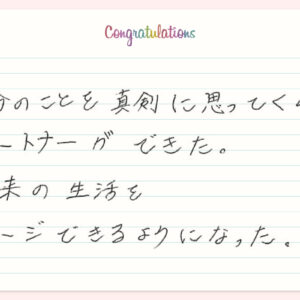 Congratulations
分のことを真剣に思ってく
ートナーができた。
来の生活を
ージできるようになった。